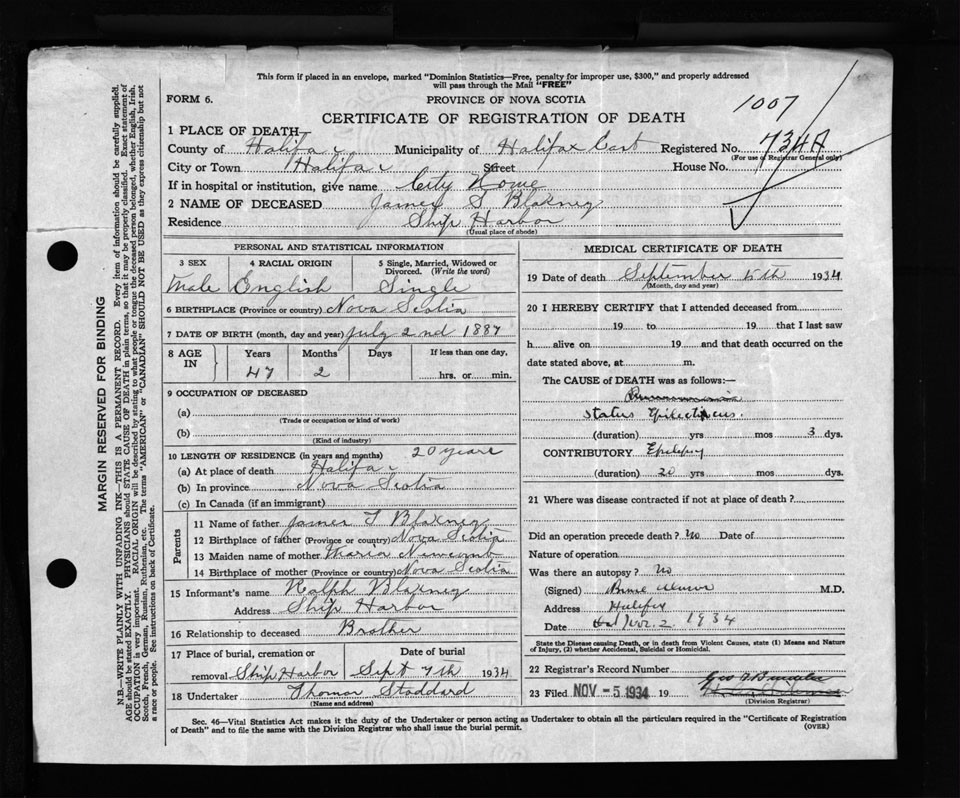 This form if placed in an envelope, marked "Dominion Statistics—Free, penalty for improper use, $300," and properly addressed
will pass through the Mail "FREE"
FORM 6.
PROVINCE OF NOVA SCOTIA
1007
CERTIFICATE OF REGISTRATION OF DEATH
1 PLACE OF DEATH—
County of Halifax Municipality of Halifax East Registered No. 734A
(For use of Registrar General only)
City or Town Halifax Street House No.
If in hospital or institution, give name City Home
2 NAME OF DECEASED James S Blakney
Residence Ship Harbor
(Usual place of abode)
PERSONAL AND STATISTICAL INFORMATION
3 SEX 4 RACIAL ORIGIN 5 Single, Married, Widowed or
Divorced. (Write the word)
Male English Single
6 BIRTHPLACE (Province or country) Nova Scotia
7 DATE OF BIRTH (month, day and year) July 2nd 1887
8 AGE IN Years Months Days If less than one day,
47 2 hrs. or min.
9 OCCUPATION OF DECEASED
(a)
(Trade or occupation or kind of work)
(b)
(Kind of industry)
10 LENGTH OF RESIDENCE (in years and months) 20 years
(a) At place of death Halifax
(b) In province Nova Scotia
(c) In Canada (if an immigrant)
Parents
11 Name of father James T Blakney
12 Birthplace of father (Province or country) Nova Scotia
13 Maiden name of mother Maria Newcomb
14 Birthplace of mother (Province or country) Nova Scotia
15 Informant's name Ralph Blakney
Address Ship Harbor
16 Relationship to deceased Brother
17 Place of burial, cremation or Date of burial
removal Ship Harbor Sept 7th 1934
18 Undertaker Thomas Stoddard
(Name and address)
MEDICAL CERTIFICATE OF DEATH
19 Date of death September 5th 1934
(Month, day and year)
20 I HEREBY CERTIFY that I attended deceased from
19 to 19 that I last saw
h alive on 19 and death occurred on the
date stated above, at m.
The CAUSE of DEATH was as follows:—
Status Epilecticus.
(duration) yrs mos 3 dys.
CONTRIBUTORY Epilepsy
(duration) 20 yrs mos. dys.
21 Where was disease contracted if not at place of death?
Did an operation precede death? No Date of
Nature of operation
Was there an autopsy? No
(Signed) M.D.
Address Halifax
Date 2 1934
State the Disease causing Death, or in death from Violent Causes, state (1) Means and Nature
of Injury, (2) whether Accidental, Suicidal or Homicidal.
22 Registrar's Record Number
23 Filed NOV -5 1934 19
(Division Registrar)
Sec. 46—Vital Statistics Act makes it the duty of the Undertaker or person acting as Undertaker to obtain all the particulars required in the "Certificate of Registration
of Death" and to file the same with the Division Registrar who shall issue the burial permit.
(OVER)
MARGIN RESERVED FOR BINDING
N.B.—WRITE PLAINLY WITH UNFADING INK—THIS IS A PERMANENT RECORD. Every item of information should be carefully supplied.
AGE should be stated EXACTLY. PHYSICIANS should STATE CAUSE OF DEATH in plain terms, so that it may be properly classified. Exact statement of
OCCUPATION is very important. RACIAL ORIGIN will be described by stating to what people or tongue the deceased person belonged, whether English, Irish,
Scotch, French, German, Russian, Ruthenian, etc. The terms "AMERICAN" or "CANADIAN" SHOULD NOT BE USED as they express citizenship but not
a race or people. See instructions on back of Certificate.